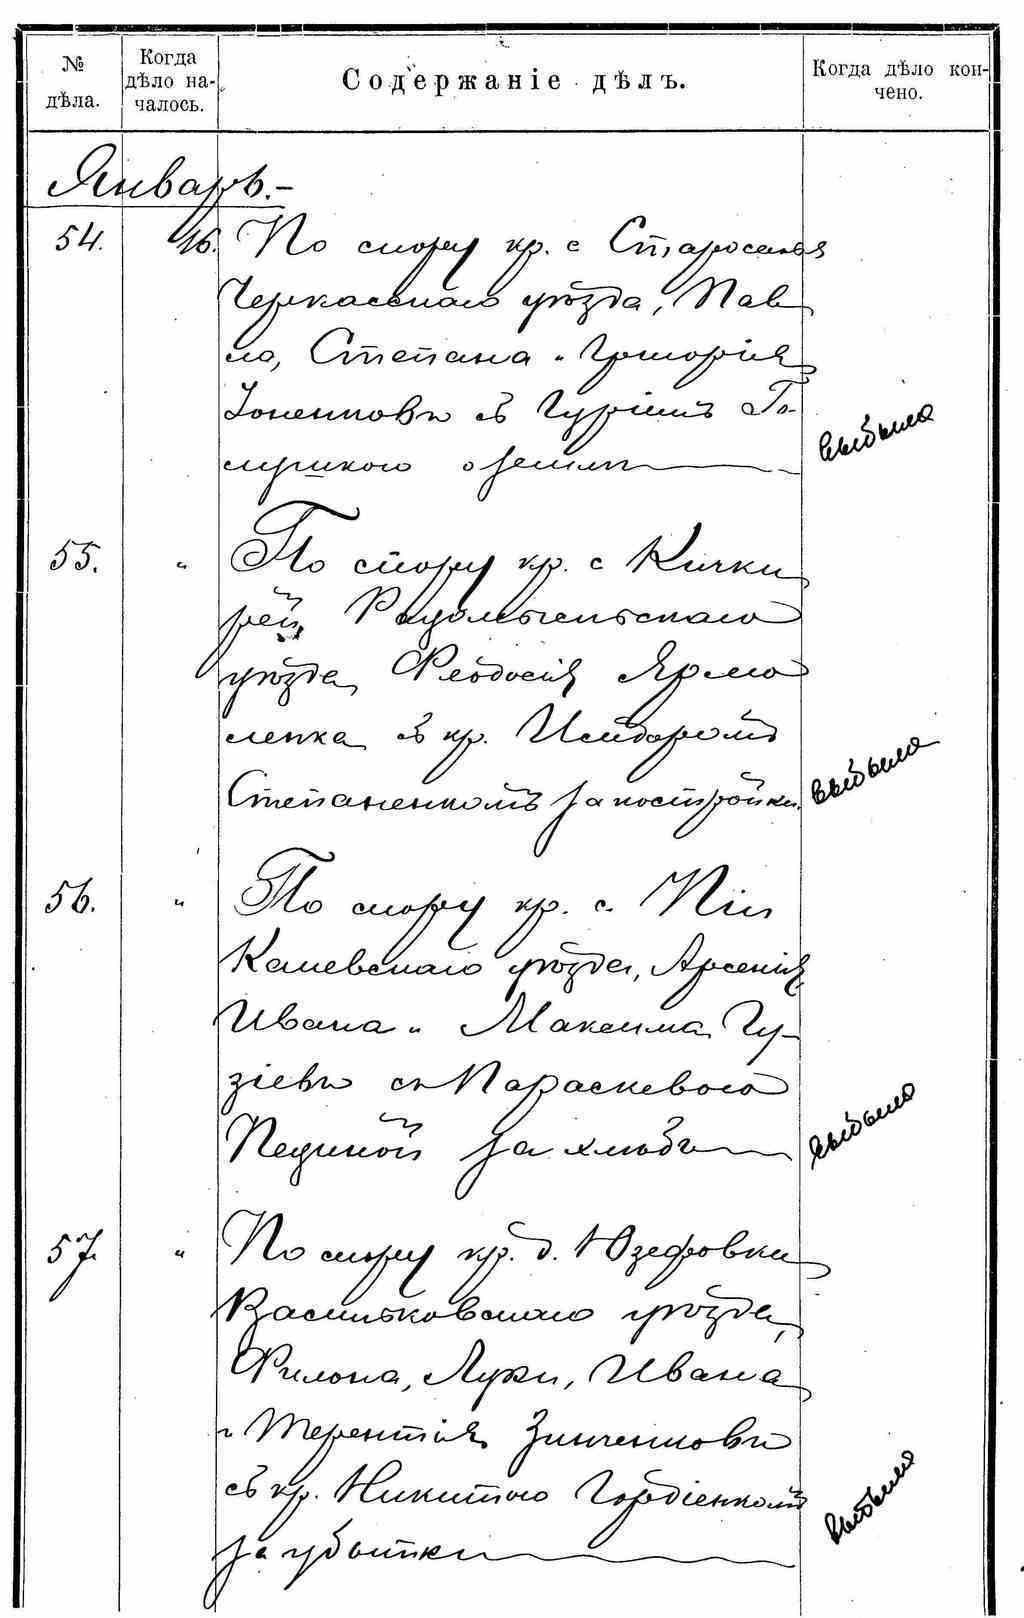 № дѣла.
Когда дѣло на-
чалось.
Содержаніе дѣлъ.
Когда дѣло кон-
чено.
Январь.-
54. 16. По спору кр. с Староселья
Черкасскаго уѣзда, Пав
ла, Степана и Григорія
съ Гуріемъ Го
о землѣ
выбыло
55. " По спору кр. с Кички
рей, Радомысльскаго
уѣзда, Феодосія Ярмо
ленка съ кр. Исидоромъ
Степаненкомъ за постройки.
выбыло
56. " По спору кр. с.
Каневскаго уѣзда, Арсенія
Ивана и Максима Гу-
зіевъ съ Параскевою
за хлѣбъ
выбыло
57. " По спору кр. д. Юзефовки
Васильковскаго уѣзда,
Филона, Луки, Ивана
и Терентія Зинченковъ
съ кр. Никитою Гордіенкомъ
за убытки
выбыло